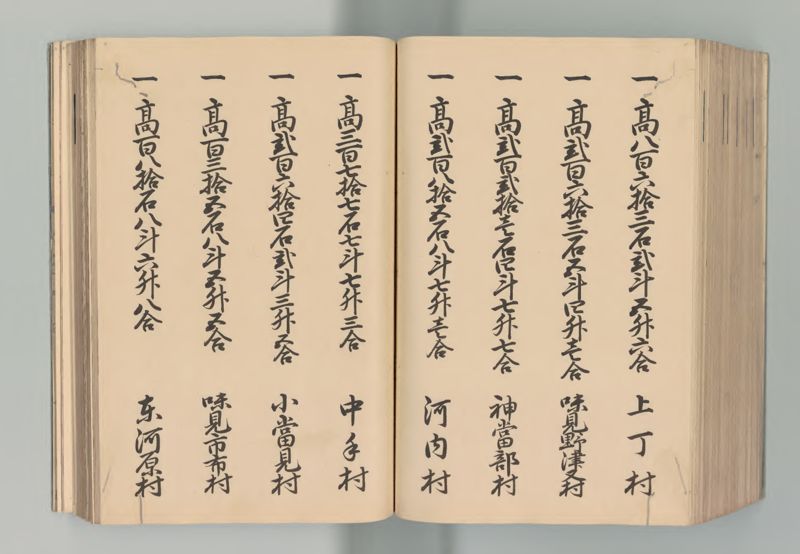 一 高八百六拾三石弐斗五升六合 上丁村
一 高弐百六拾三石五斗四升壱合 味見野津又村
一 高弐百弐拾壱石四斗七升七合 神當部村
一 高弐百八拾五石八斗七升壱合 河内村
一 高三百七拾七石七斗七升三合 中手村
一 高弐百六拾四石弐斗三升五合 小當見村
一 高百三拾五石八斗五升五合 味見市布村
一 高百八拾石八斗六升八合 东河原村